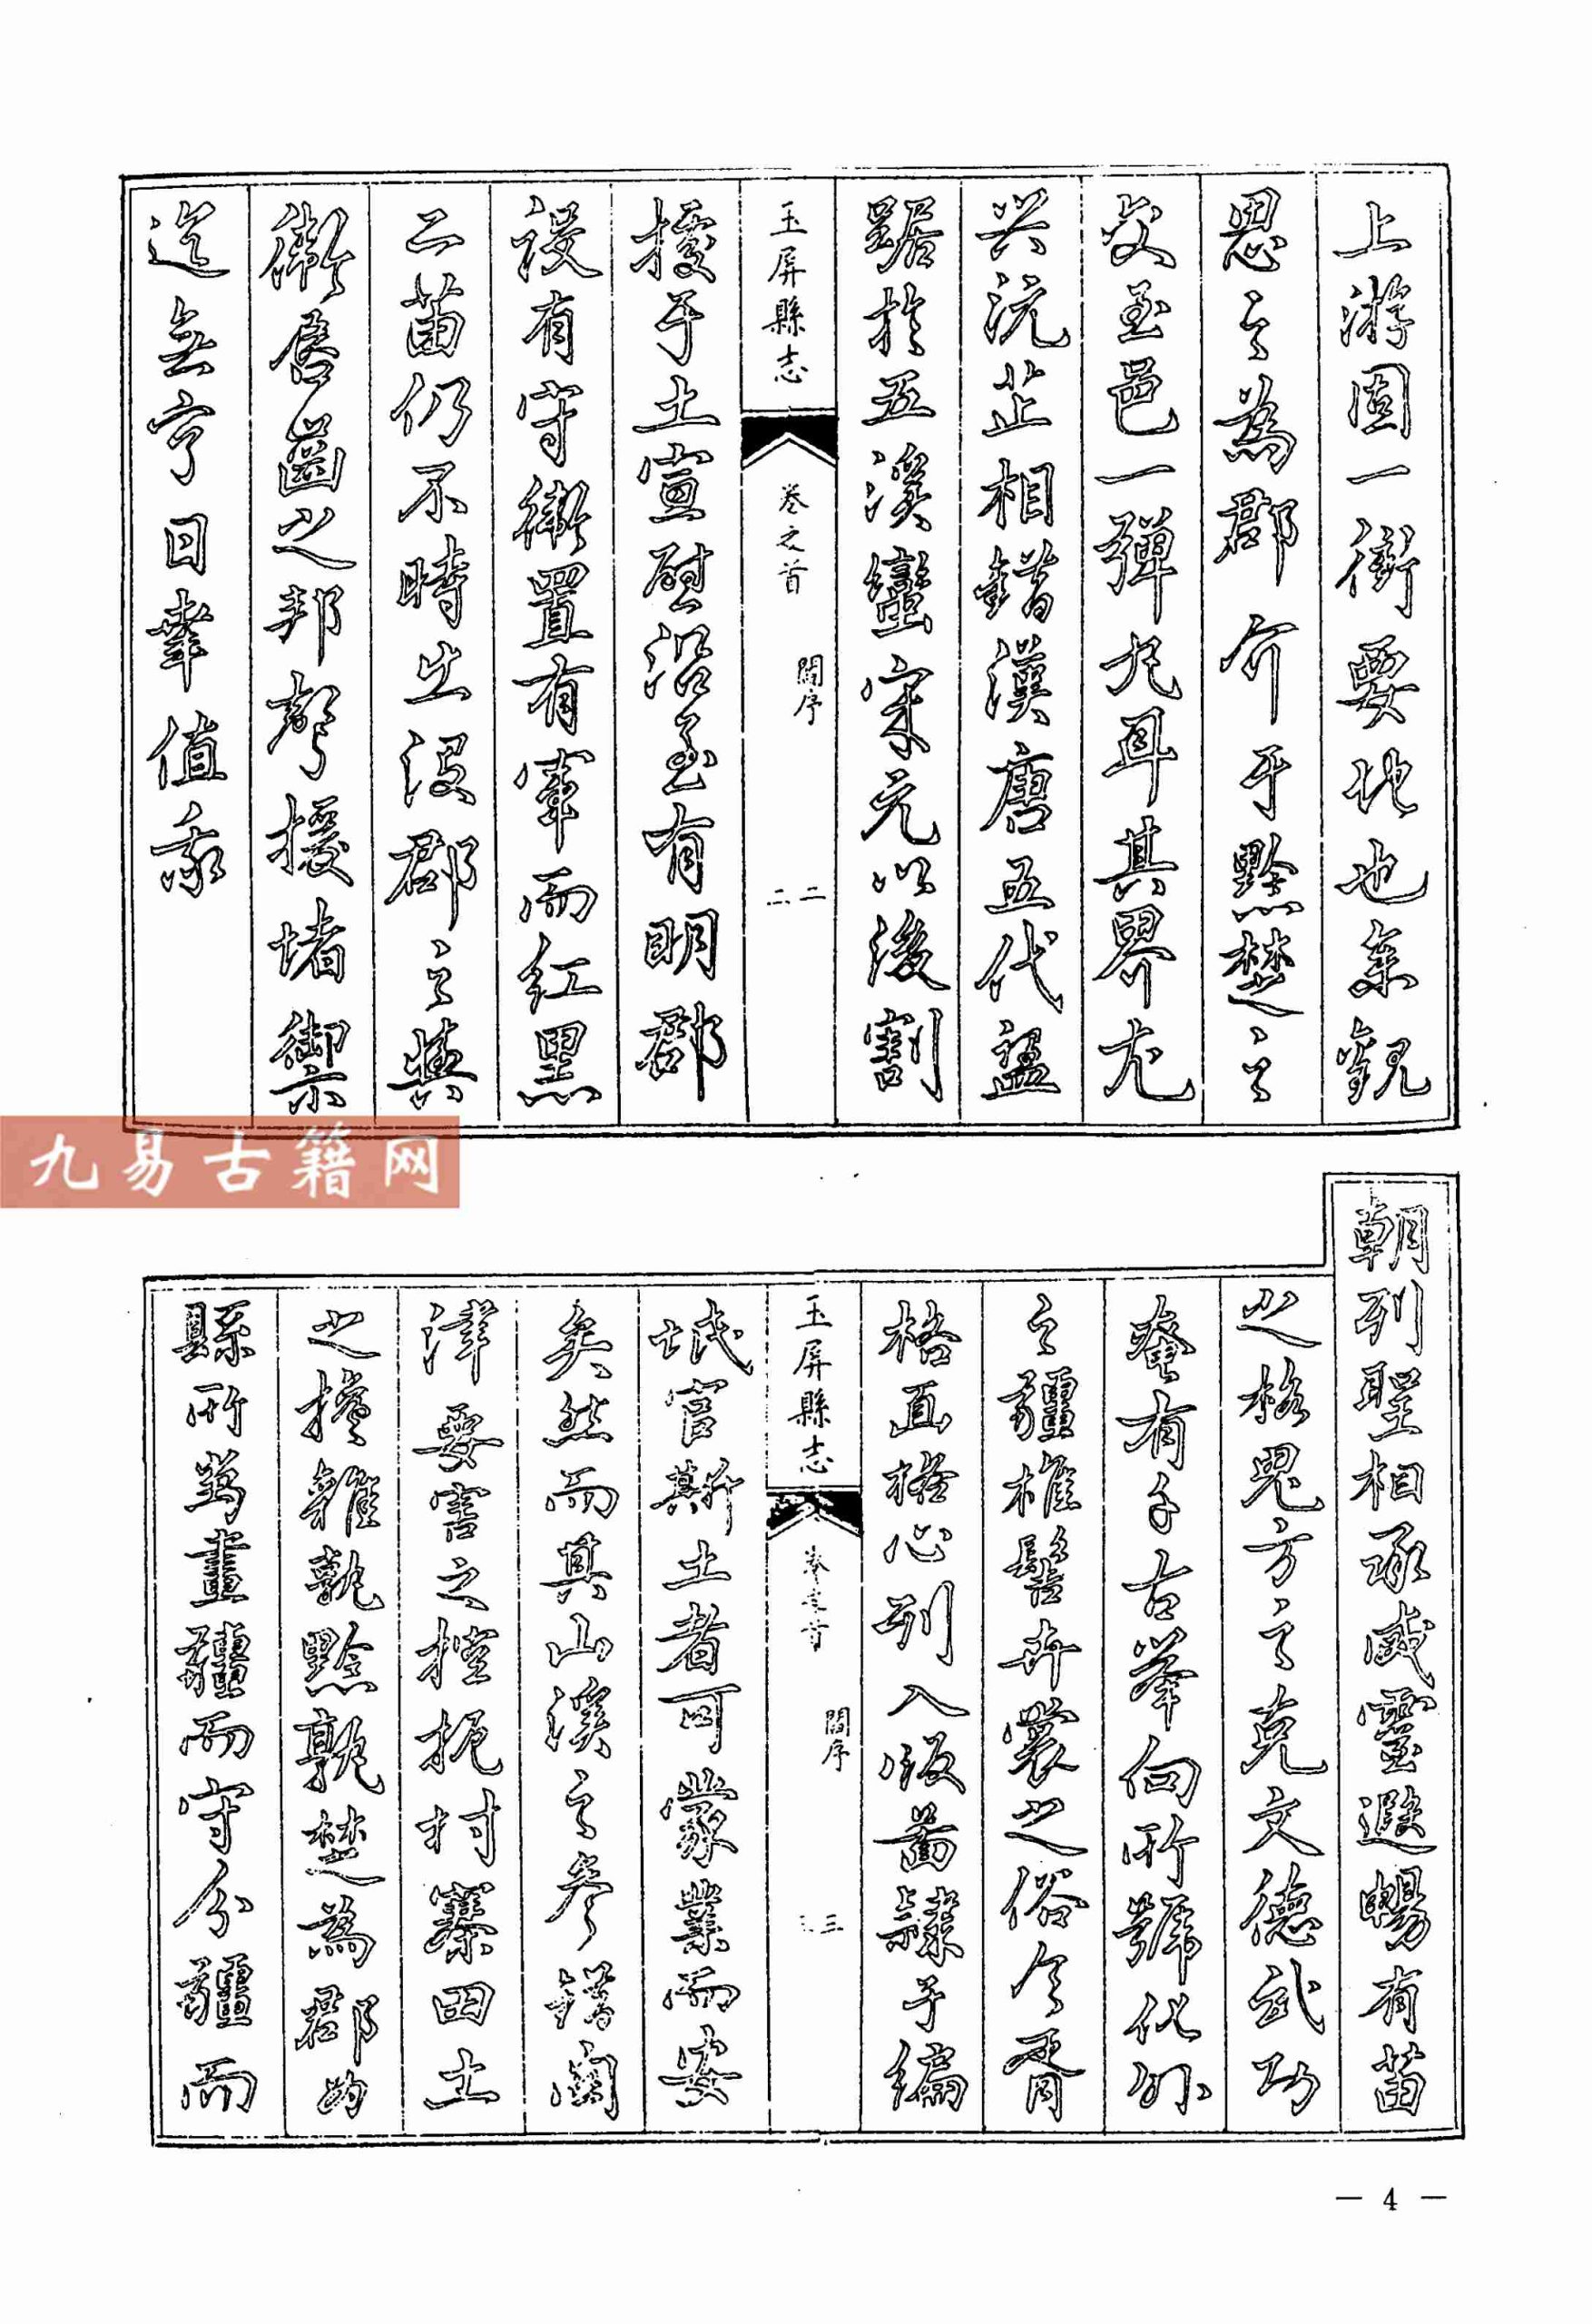 上游固一衝要地也余觀
思之為郡介于黔楚之
交至邑一彈丸耳其界尤
兴沅芷相錯漢唐五代盜
踞於五溪蠻宋元以後割
玉屏縣志
卷之首
閻序
二二
授于土宣慰沿至有明郡
設有守衛置有軍而紅黑
二苗仍不時出没郡之與
衛唇齒之邦聲援堵禦
迄無寧日幸值我
九易古籍网
朝列聖相承威靈遐暢有苗
之格鬼方之克文德武功
奄有千古举向所號化外
之疆椎髻卉裳之俗今胥
格面格心列入版啚隸于編
玉屏縣志
卷之首
閻序
三三
氓官斯土者可蒙業而安
矣然而其山溪之參錯関
津要害之控扼村寨田土
之攙雜孰黔孰楚為郡為
縣所為畫疆而守分疆而
— 4 —